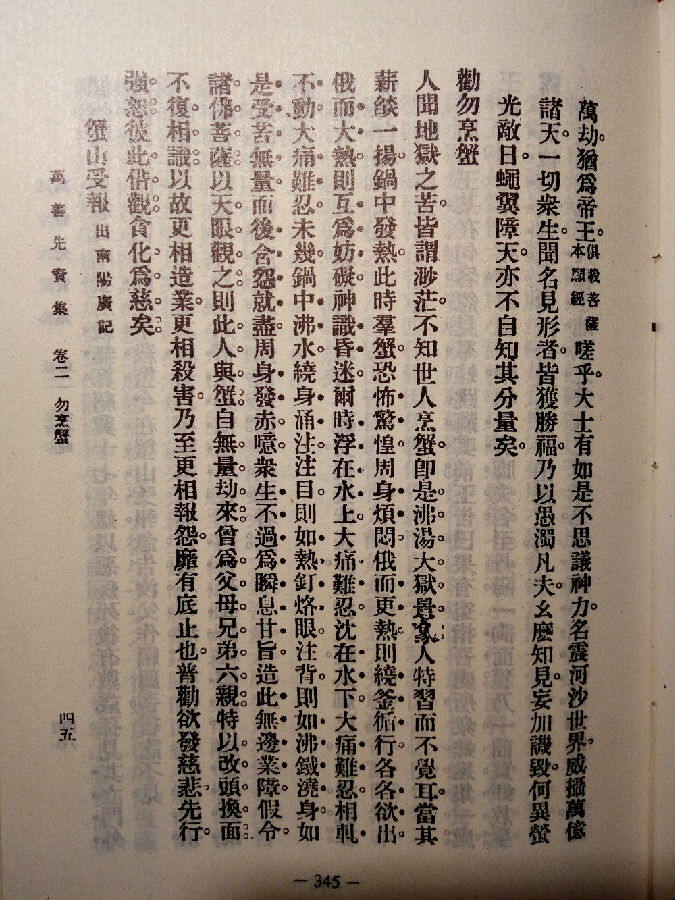 萬劫猶爲帝王。俱殺菩薩本願經嗟乎大士有如是不思議神力。名震河沙世界。威攝萬億
諸天。一切衆生。聞名見形者。皆獲勝福。乃以愚濁凡夫。幺麼知見。妄加譏毀。何異螢
光敵日。蠅翼障天。亦不自知其分量矣。
勸勿烹蟹
人聞地獄之苦。皆謂渺茫。不知世人烹蟹。卽是沸湯大獄景象。人特習而不覺耳。當其
薪燄一揚。鍋中發熱。此時羣蟹恐怖驚惶。周身煩悶。俄而更熱。則繞釜循行。各各欲出。
俄而大熱。則互爲妨礙。神識昏迷。爾時浮在水上。大痛難忍。沈在水下。大痛難忍。相軋
不動。大痛難忍。未幾鍋中沸水繞身涌注。注目則如熱釘烙眼。注背則如沸鐵澆身。如
是受苦無量。而後含怨就盡。周身發赤。噫。衆生不過爲瞬息甘旨。造此無邊業障。假令
諸佛菩薩以天眼觀之。則此人與蟹。自無量劫來。曾爲父母兄弟六親。特以改頭換面。
不復相識。以故更相造業。更相殺害。乃至更相報怨。靡有底止也。普勸欲發慈悲。先行
強恕。彼此借觀。貪化爲慈矣。
蟹山受報 出南陽廣記
萬善先資集 卷二 勿烹蟹
四五
— 345 —